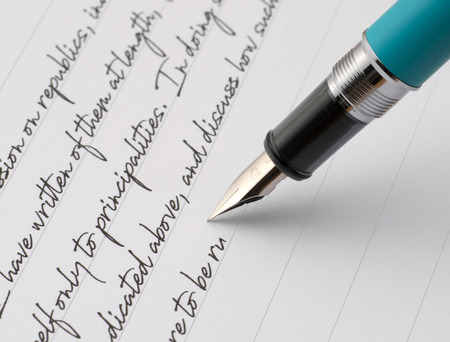 ssion on republics, in
I have written of them at length,
self only to principalities. In doing s
dicated above, and discuss how such
re to be ru